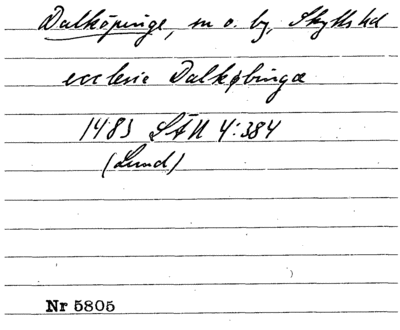 Dalköpinge, sn o. by, Skytts hd
ecclesie Dalkøbingæ
1483 SÄU 4:384
(Lund)
Nr 5805